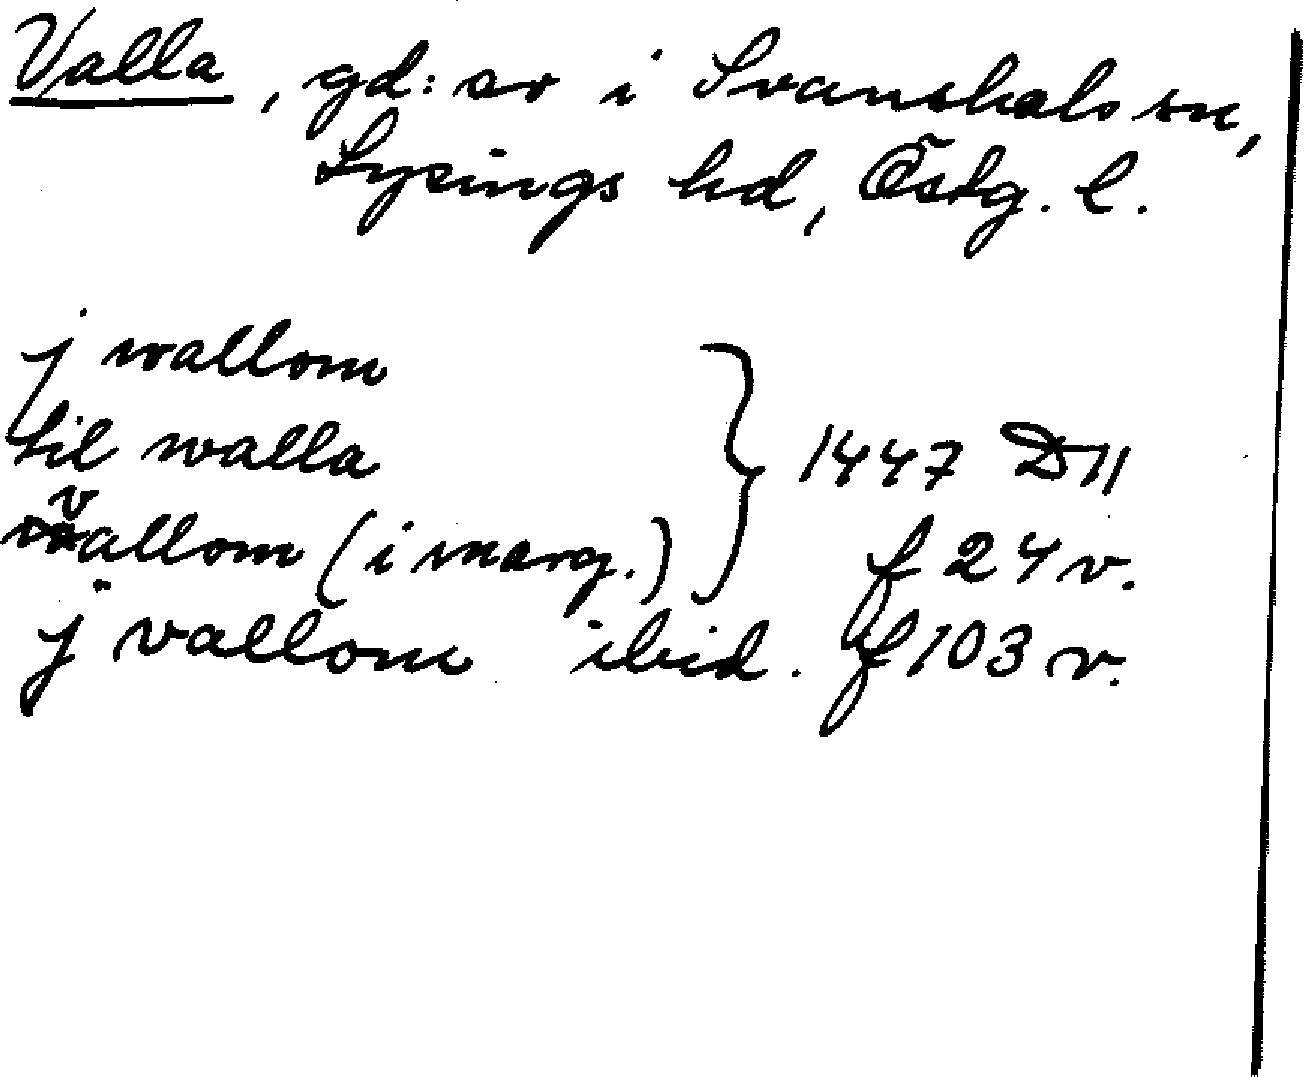 Valla, gd: ar i Svanshals sn,
Lysings hd, Östg. l.
j wallom
til walla } 1447 D11
vallom (i marg.) f 24 v.
j vallom ibid. f 103 v.